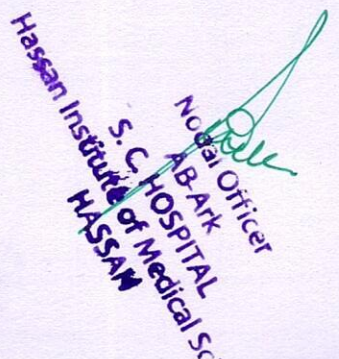 Nodal Officer
AB-Ark
S. C. HOSPITAL
Hassan Institute of Medical Sc
HASSAN